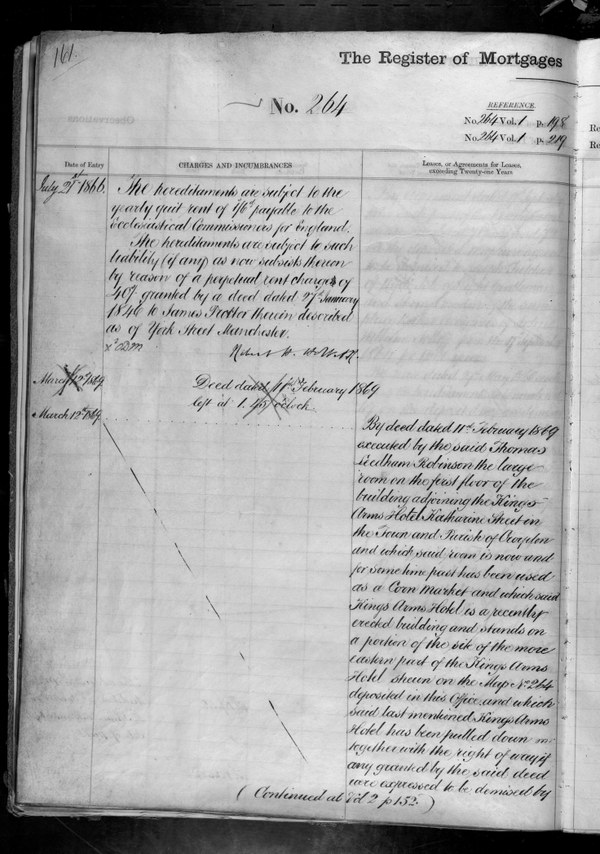 161.
The Register of Mortgages
No. 264
REFERENCE.
No. 264 Vol. 1 p. 198
No. 264 Vol. 1 p. 219
Date of Entry
CHARGES AND INCUMBRANCES
Leases, or Agreements for Leases,
exceeding Twenty-one Years
July 21st 1866.
The hereditaments are subject to the
yearly quit rent of 1/6d payable to the
Ecclesiastical Commissioners for England.
The hereditaments are subject to such
liability (if any) as now subsists thereon
by reason of a perpetual rent charge of
granted by a deed dated 27th January
1846 to James Proctor therein described
as of York Street Manchester.
Robert H.
March 12th 1869
Deed dated 11th February 1869
left at 1.45 o'clock
March 12th 1869
By deed dated 11th February 1869
executed by the said Thomas
Robinson the large
room on the first floor of the
building adjoining the Kings
Arms Hotel Katharine Street in
the Town and Parish of Croydon
and which said room is now and
for some time past has been used
as a Corn Market and which said
Kings Arms Hotel is a recently
erected building and stands on
a portion of the site of the more
eastern part of the Kings Arms
Hotel shewn on the Map No 264
deposited in this Office and which
said last mentioned Kings Arms
Hotel has been pulled down
together with the right of way if
any granted by the said deed
were expressed to be demised by
( Continued at Vol 2 p 152 )